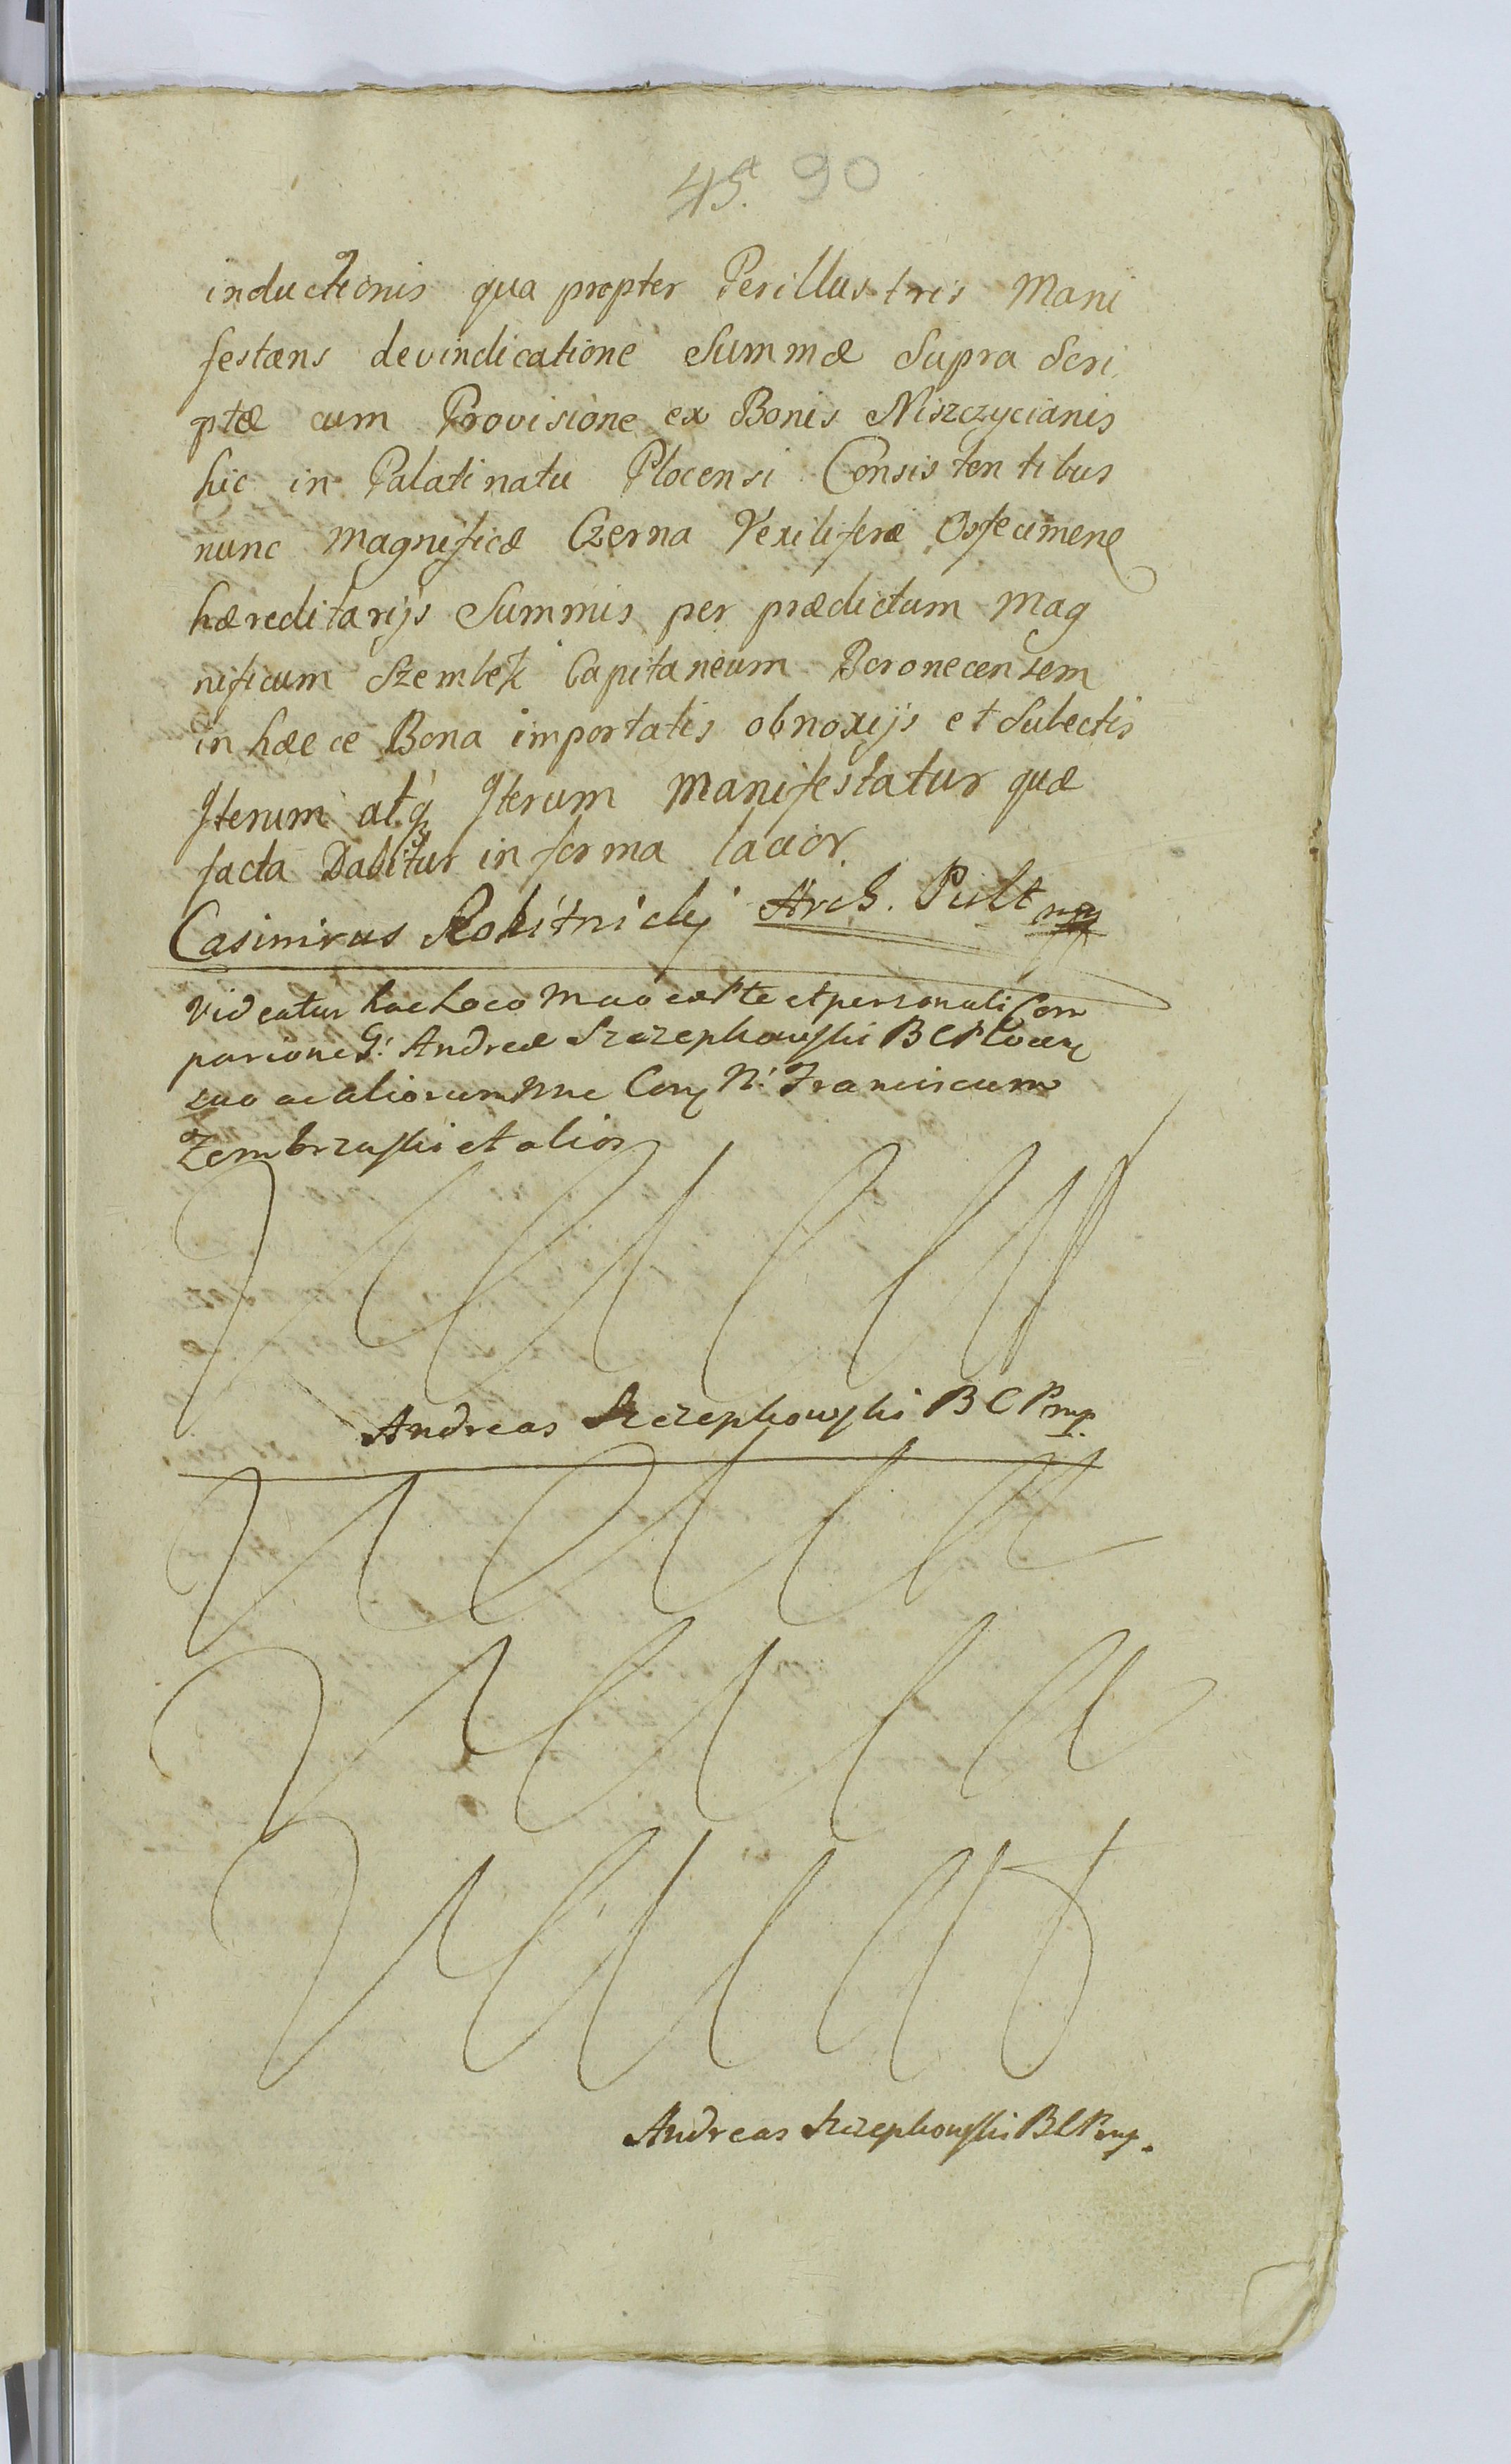 45. 90
inductionis qua propter Perillustris Mani
festæns devindicatione Summæ Supra Scri
ptæ cum Provisione ex Bonis Niszczycianis
hic in Palatinatu Plocensi Consistentibus
nunc Magnificæ Czerna Vexiliferæ
hæreditarijs Summis per prædictum Mag
nificum Szembek Capitaneum
in hæece Bona importatis obnoxijs et Subectis
Iterum atq Iterum Manifestatur quæ
facta Dabitur in forma lacior.
Casimirus Rokitnicki Arch. Pult mp
Videatur hac Loco et personali Com
parione G: Andreæ Szczepkowski BC
suo ac aliorum nne N: Franciscum
Zembrzuski et alios
Andreas Szczepkowski BCP mp.
Andreas Szczepkowski BCP mp.